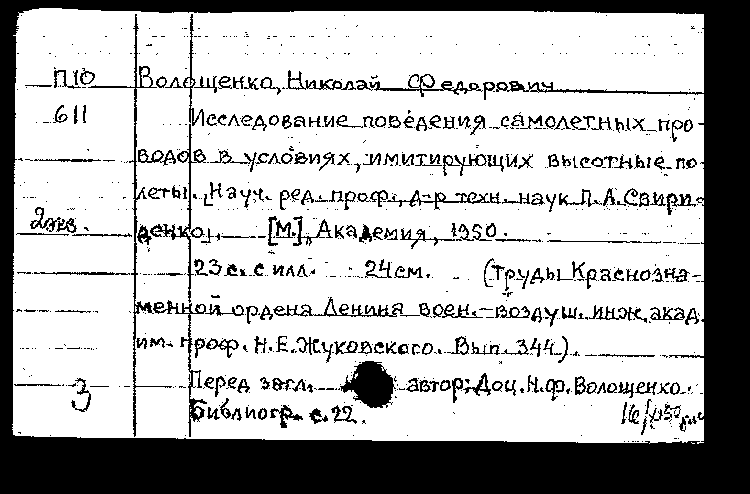 П10 Волощенко, Николай Федорович
611 Исследование поведения самолетных про-
водов в условиях, имитирующих высотные по-
леты. [Науч. ред. проф., д-р техн. наук П.А.Свири-
2экз. денко]. [М.], Академия, 1950.
23 с. с илл. 24 см. (Труды Краснозна-
менной ордена Ленина воен.-воздуш. инж. акад.
им. проф. Н.Е.Жуковского. Вып. 344).
3 Перед загл. автор: Доц. Н.Ф. Волощенко.
Библиогр. с. 22.